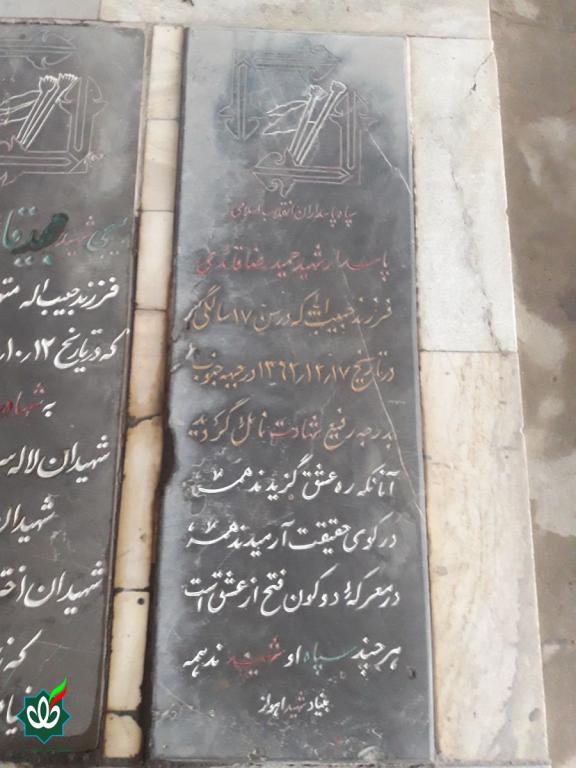 سپاه پاسداران انقلاب اسلامی
پاسدار شهید حمیدرضا قائدی
فرزند حبیب الله که در سن ۱۷ سالگی
در تاریخ ۱۳۶۲/۱۲/۱۷ در جبهه جنوب
بدرجه رفیع شهادت نائل گردید
آنانکه ره عشق گزیدند همه
در کوی حقیقت آرمیدند همه
در معرکهٔ دو کون فتح از عشق است
هر چند سپاه او شهیدند همه
بنیاد شهید اهواز
بسیجی شهید
فرزند حبیب اله
که در تاریخ ۱۰/۱۲
به شهادت
شهیدان لاله
شهیدان
شهیدان
که